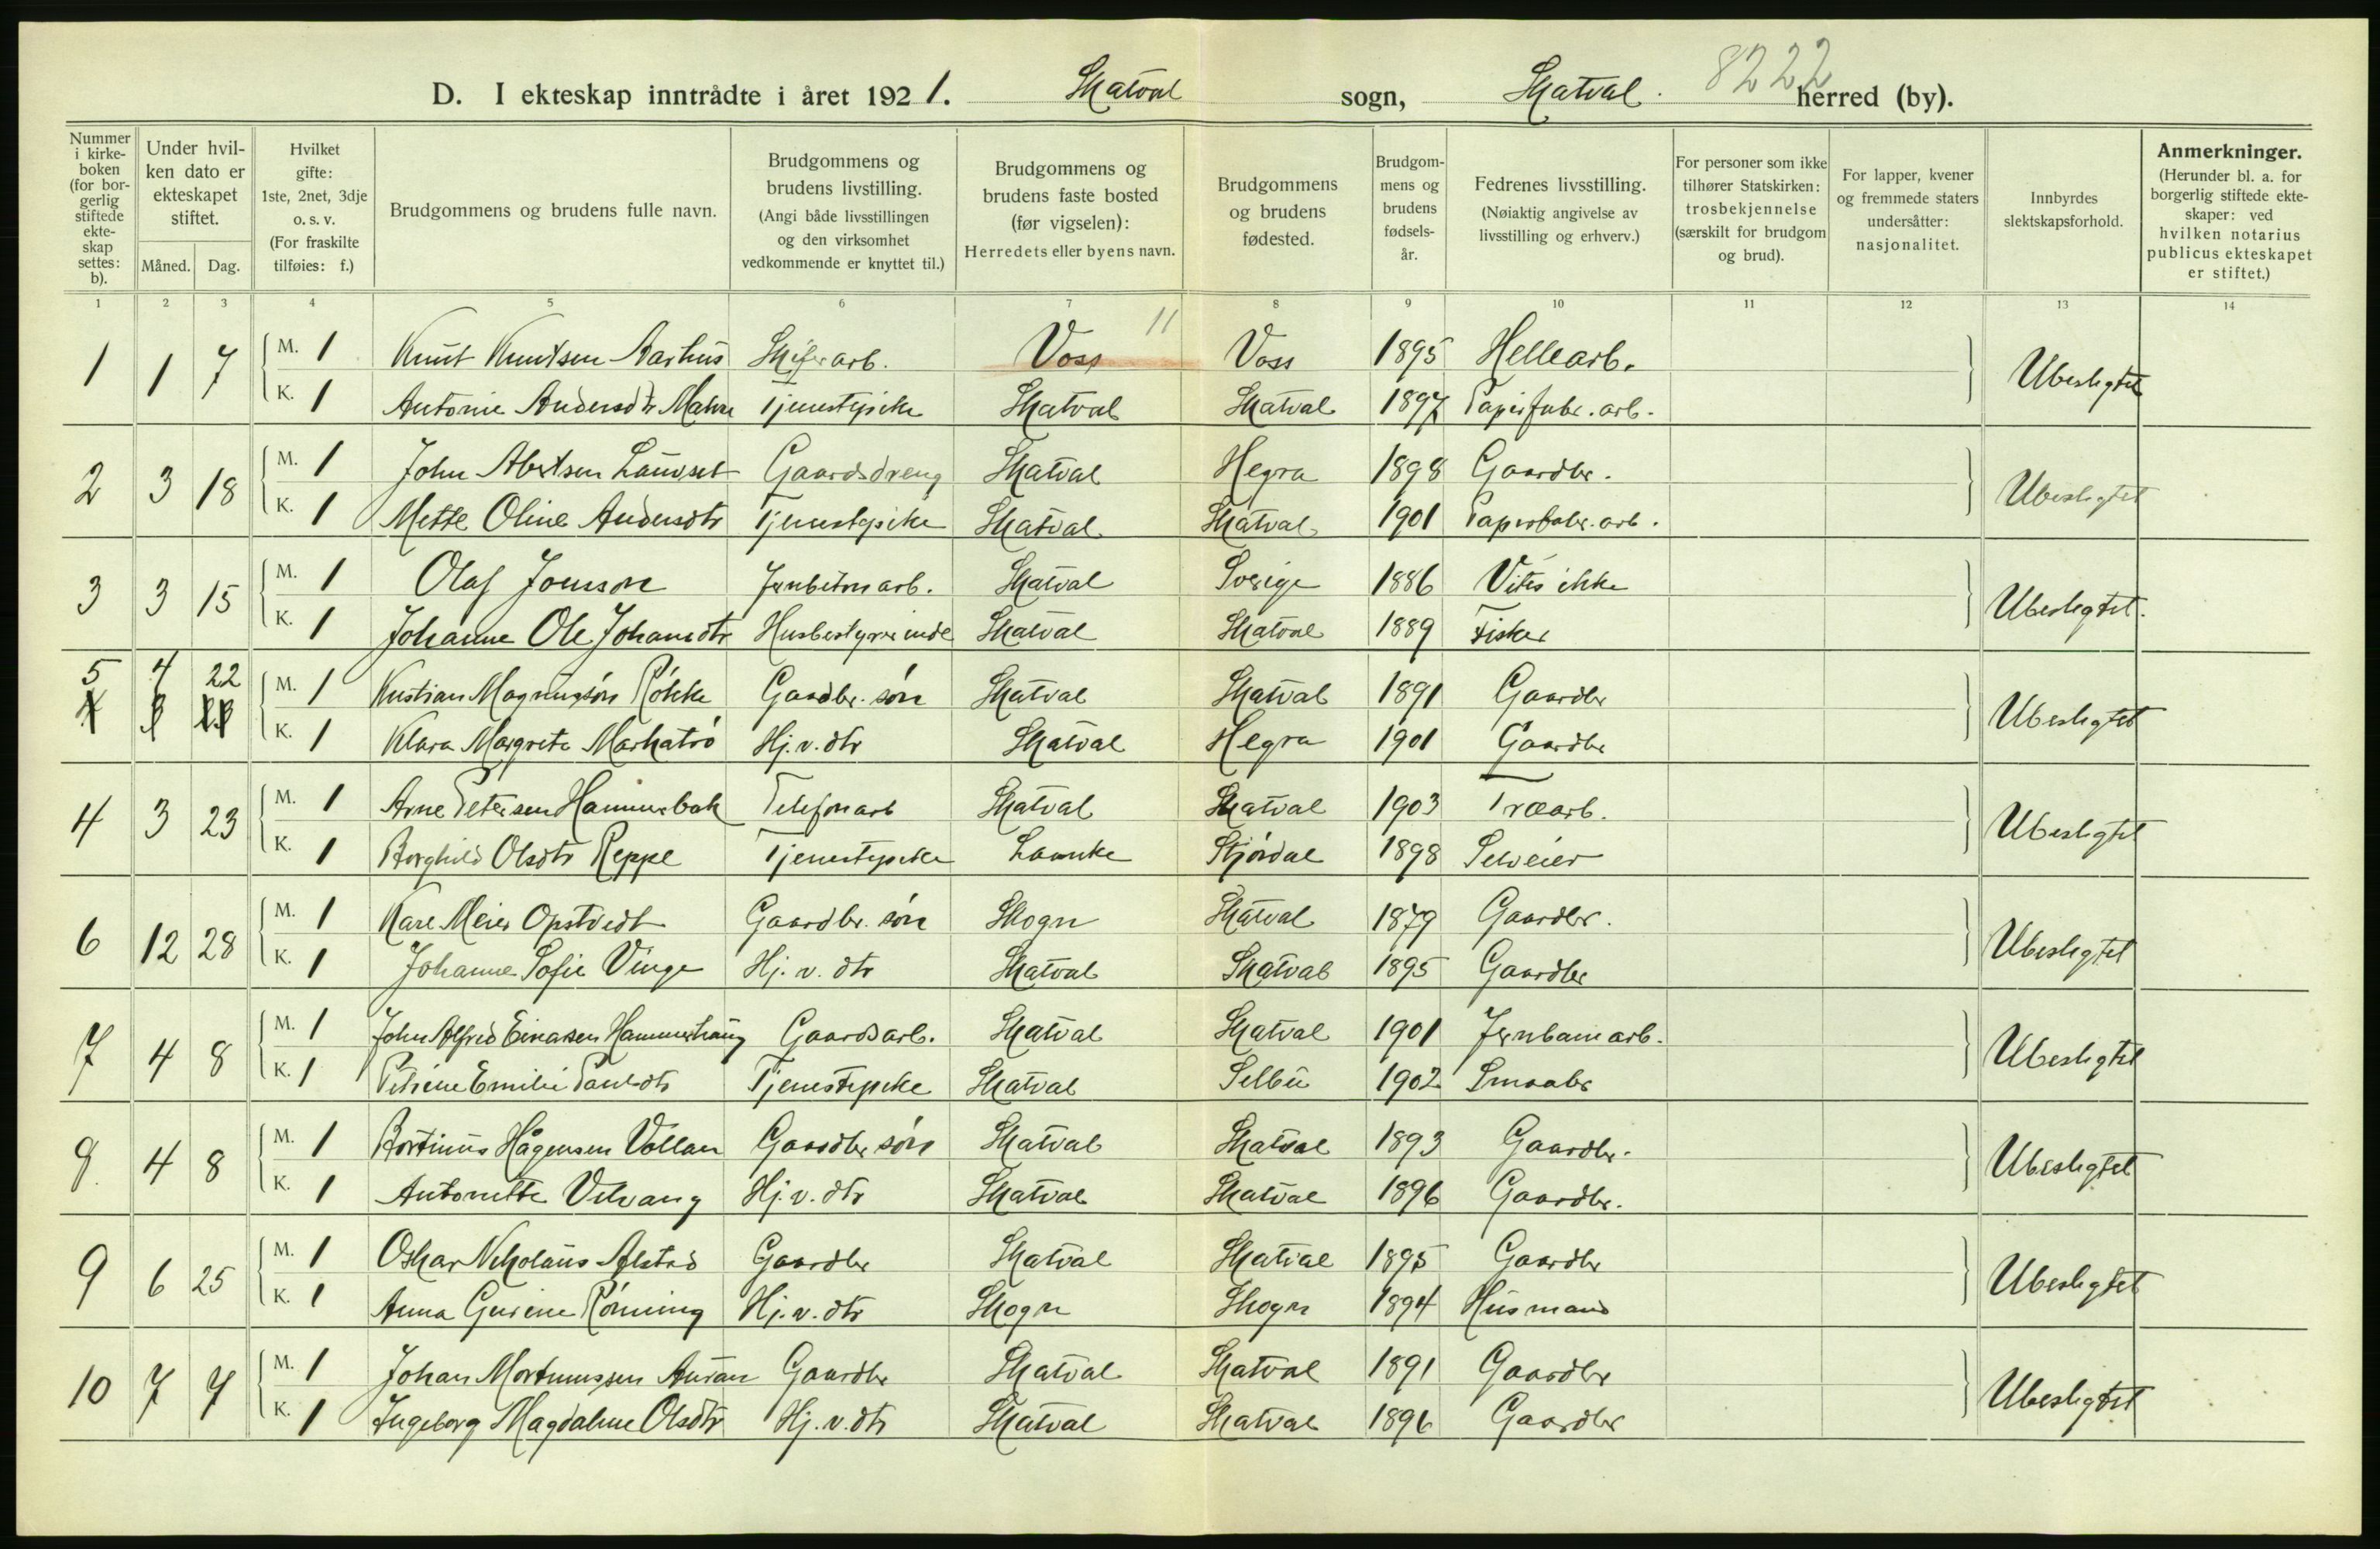 8222
D. I ekteskap inntrådte i året 1921. Skatval sogn, Skatval. herred (by).
Nummer i kirkeboken (for borgerlig stiftede ekteskap settes: b).
Under hvilken dato er ekteskapet stiftet.
Måned. Dag.
Hvilket gifte: 1ste, 2net, 3dje o. s. v. (For fraskilte tilføies: f.)
Brudgommens og brudens fulle navn.
Brudgommens og brudens livstilling. (Angi både livsstillingen og den virksomhet vedkommende er knyttet til.)
Brudgommens og brudens faste bosted (før vigselen): Herredets eller byens navn.
Brudgommens og brudens fødested.
Brudgommens og brudens fødselsår.
Fedrenes livsstilling. (Nøiaktig angivelse av livsstilling og erhverv.)
For personer som ikke tilhører Statskirken: trosbekjennelse (særskilt for brudgom og brud).
For lapper, kvener og fremmede staters undersåtter: nasjonalitet.
Innbyrdes slektskapsforhold.
Anmerkninger. (Herunder bl. a. for borgerlig stiftede ekteskaper: ved hvilken notarius publicus ekteskapet er stiftet.)
1 2 3 4 5 6 7 8 9 10 11 12 13 14
11
1 1 7 M. 1 Knut Knutsen Aarhus Skiferarb. Voss Voss 1895 Hellearb. Ubeslegtet
K. 1 Antonie Andersdtr Tjenestepike Skatval Skatval 1897 Papirfabr. arb.
2 3 18 M. 1 John Gaardsdreng Skatval Hegra 1898 Gaardbr. Ubeslegtet
K. 1 Mette Oline Andersdtr Tjenestepike Skatval Skatval 1901 Papirfabr. arb.
3 3 15 M. 1 Olaf Jonsson Skatval Sverige 1886 Vites ikke Ubeslegtet.
K. 1 Johanne Ole Johansdtr Husbestyrerinde Skatval Skatval 1889 Fisker
5 4 22 M. 1 Kristian Magnussøn Røkke Gaardbr. søn Skatval Skatval 1891 Gaardbr Ubeslegtet
K. 1 Klara Margrete Hj. v. dtr Skatval Hegra 1901 Gaardbr
4 3 23 M. 1 Arne Petersen Hammerbak Telefonarb Skatval Skatval 1903 Træarb. Ubeslegtet
K. 1 Borghild Olsdtr Reppe Tjenestepike Laanke Stjørdal 1898 Selveier
6 12 28 M. 1 Kare Meier Opstvedt Gaardbr. søn Skogn Skatval 1879 Gaardbr. Ubeslegtet
K. 1 Johanne Sofie Vinge Hj. v. dtr Skatval Skatval 1895 Gaardbr
7 4 8 M. 1 John Alfred Einarsen Hammerhaug Gaardsarb. Skatval Skatval 1901 Jernbanearb. Ubeslegtet
K. 1 Petrine Emilie Paulsdtr Tjenestepike Skatval Selbu 1902 Smaabr
8. 4 8 M. 1 Hågensen Vollan Gaardbr søn Skatval Skatval 1893 Gaardbr. Ubeslegtet
K. 1 Antonette Velvang Hj. v. dtr Skatval Skatval 1896 Gaardbr.
9 6 25 M. 1 Oskar Nikolaus Alstad Gaardbr Skatval Skatval 1895 Gaardbr Ubeslegtet
K. 1 Anna Gurine Rønning Hj. v. dtr Skogn Skogn 1894 Husmand
10 7 7 M. 1 Johan Mortinussen Auran Gaardbr Skatval Skatval 1891 Gaardbr Ubeslegtet
K. 1 Ingeborg Magdalene Olsdtr Hj. v. dtr Skatval Skatval 1896 Gaardbr